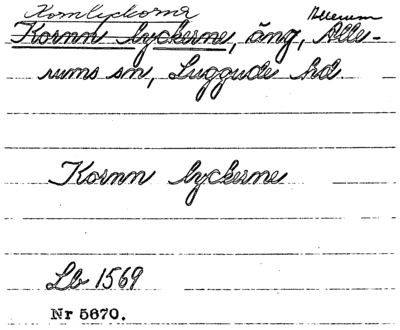 Kornlyckorna Allerum
Kornn lyckerne, äng, Alle-
rums sn, Luggude hd
Kornn lyckerne
Lb 1569
Nr 5670.